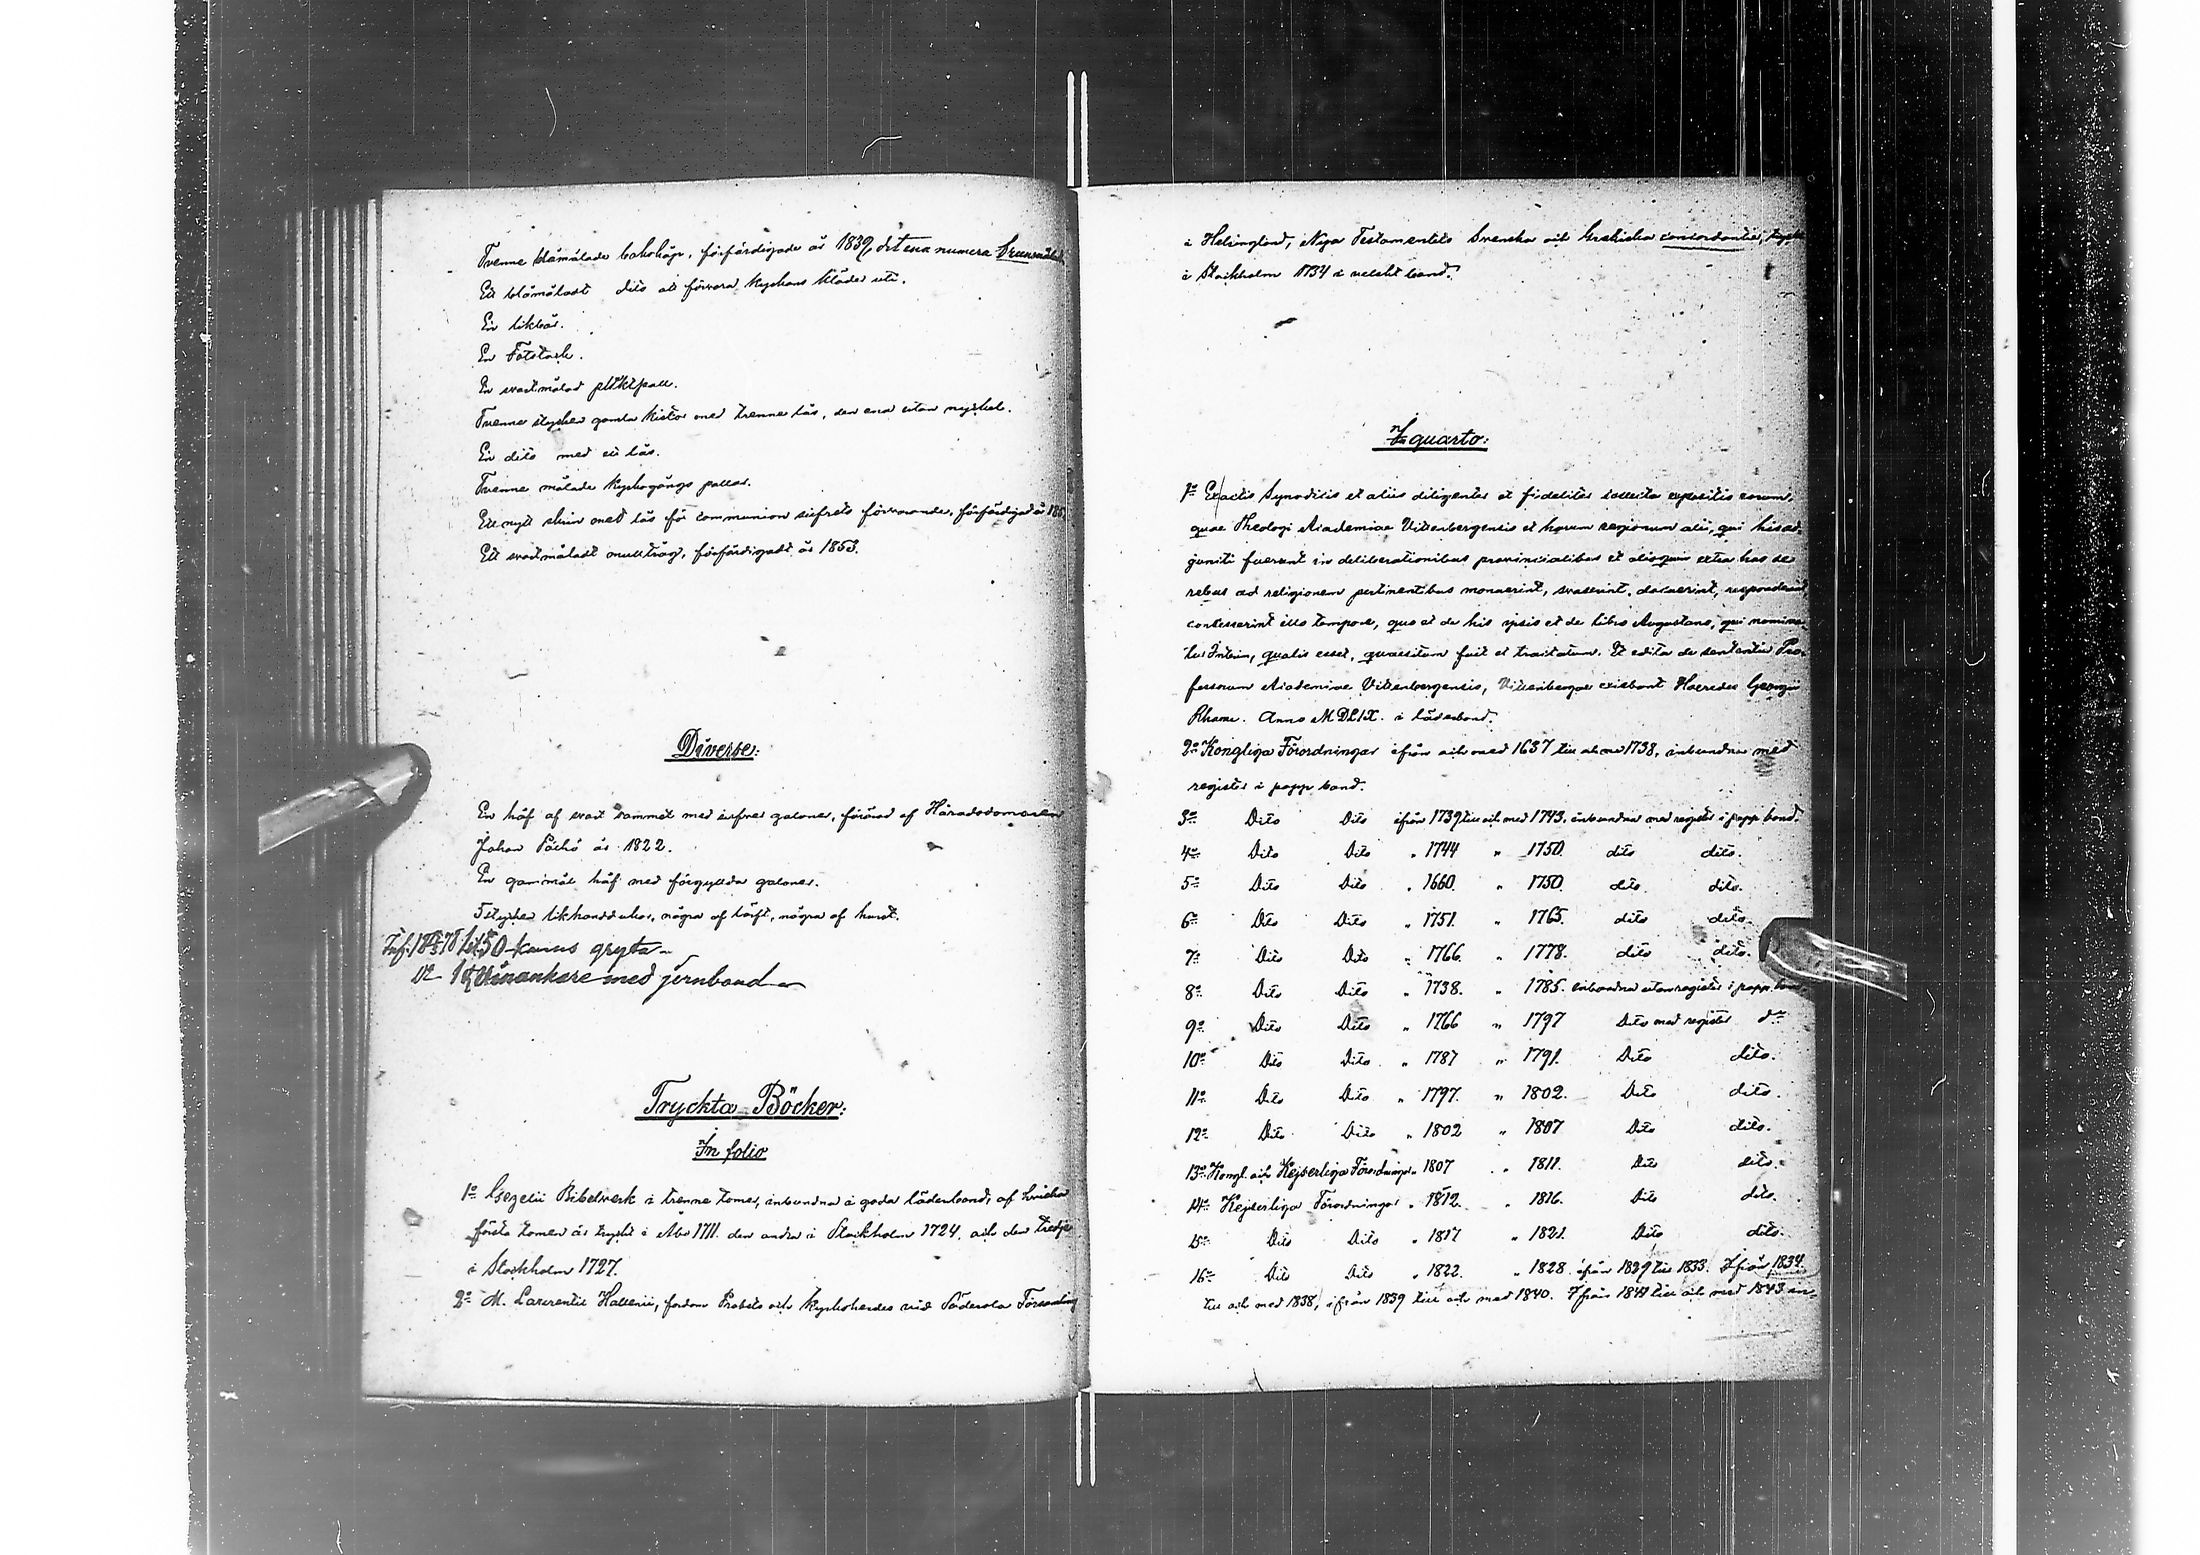 Tvenne blåmålade bokskåp, förfärdigade år 1839, det ena numera
Ett blåmåladt dito att förvara kyrkans kläder uti.
En likbår.
En Fotstock.
En svartmålad pliktpall.
Tvenne stycken gamla kistor med trenne lås, den ena utan nyckel.
En dito med ett lås.
Tvenne målade kyrkogångs pallar.
Ett nytt skrin med lås för communion silfrets förvarande, förfärdigad år
Ett svartmåladt mulltråg, förfärdigadt år 1853.
Diverse:
En håf af svart sammet med silfver galoner, förärad af Häradsdomaren
Johan år 1822.
En gammal håf med förgyllda galoner.
5 stycken likhanddukar, några af lärft, några af
50 kanns gryta
1 med jernband
Tryckta Böcker:
In folio
1o Gezelii Bibelwerk i trenne tomer, inbundna i goda läderband, af hvilka
första tomen är tryckt i Åbo 1711. den andra i Stockholm 1724, och den tredje
i Stockholm 1727.
2o M. Laurentii Hallenii, fordom Probsts och Kyrkoherdes vid Söderala Församling
i Helsingland, Nya Testamentets Svenska och Grekiska concordantie, tryckt
i Stockholm 1734 i band.
In quarto:
1o Ex actis Synodicis et aliis diligenter et fideliter collecta expositio eorum,
quae Theologi Academiae Vittenbergensis et harum regionum alii, qui his ad-
juncti fuerunt in deliberationibus provincialibus et alioquin extra has de
rebus ad religionem pertinentibus monuerint, svaserint, docuerint, responderint,
concesserint illo tempore, quo et de his ipsis et de libro Augustano, qui nomina-
tur Interim, qualis esset, quaesitum fuit et tractatum. Et edita de sententia Pro-
fessorum Academiae Vittenbergensis, Vittenbergae Haeredes Georgii
Rhawi. Anno MDLIX. i läderband.
2o Kongliga Förordningar ifrån och med 1687 till och med 1738, inbundna med
register i papp band.
3o Dito Dito ifrån 1739 till och med 1743, inbundna med register i papp band.
4o Dito Dito „ 1744 „ 1750. dito dito.
5o Dito Dito „ 1660. „ 1750. dito dito.
6o Dito Dito „ 1751. „ 1765. dito dito.
7o Dito Dito „ 1766. „ 1778. dito dito.
8o Dito Dito „ 1738. „ 1785. inbundna utan register i papp band
9o Dito Dito „ 1766 „ 1797 Dito med register do
10o Dito Dito „ 1787 „ 1791. Dito dito.
11o Dito Dito „ 1797. „ 1802. Dito dito.
12o Dito Dito „ 1802 „ 1807 Dito dito.
13o Kongl. och Kejserliga Förordningar „ 1807 „ 1811. Dito dito.
14o Kejserliga Förordningar „ 1812. „ 1816. Dito dito.
15o Dito Dito „ 1817 „ 1821. Dito dito.
16o Dito Dito „ 1822. „ 1828. ifrån 1829 till 1833. Ifrån 1834
till och med 1838, ifrån 1839 till och med 1840. Ifrån 1841 till och med 1843 in-